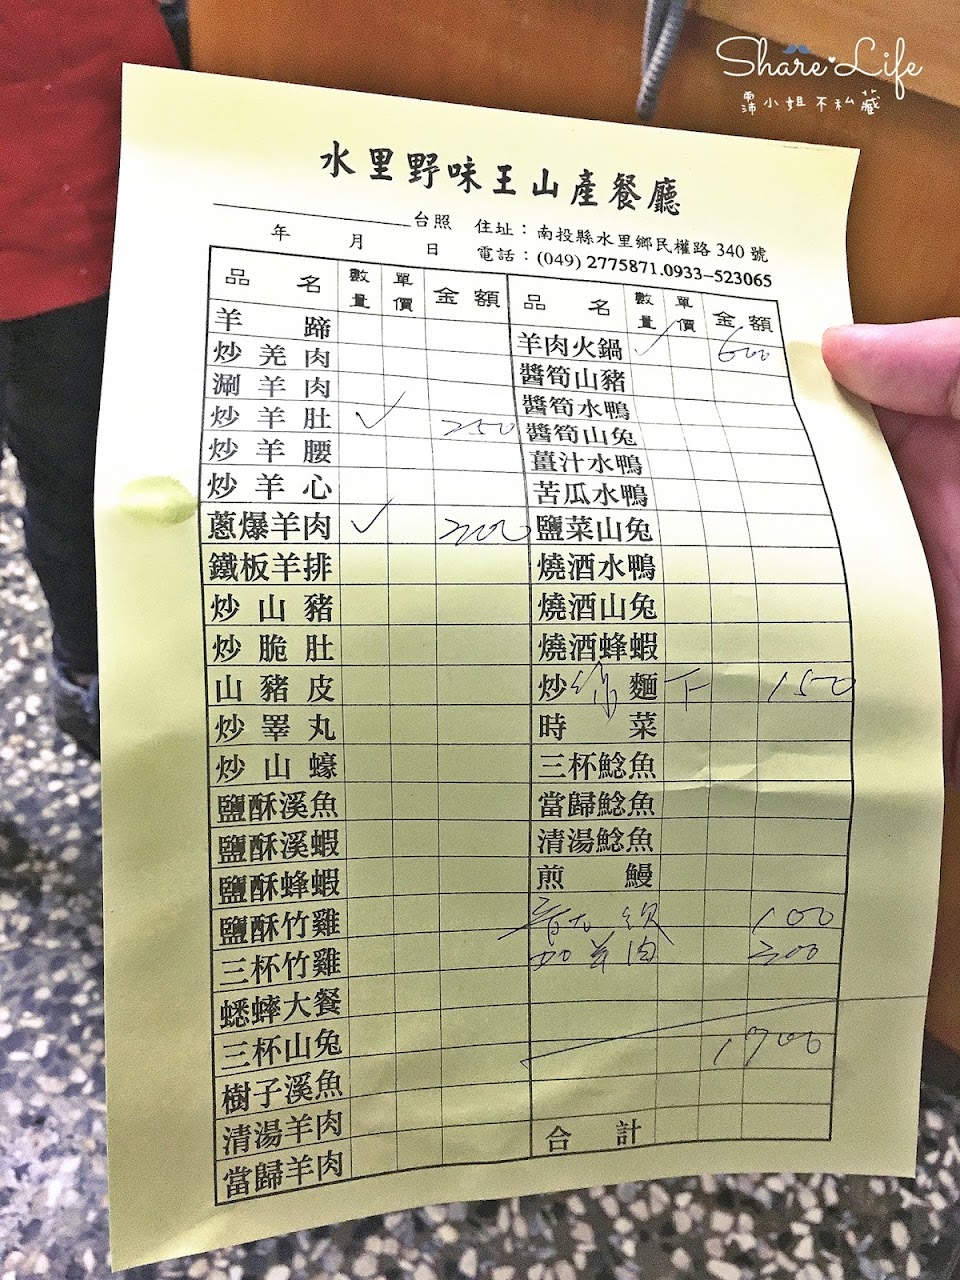 Share Life
霈小姐不私藏
水里野味王山產餐廳
台照 住址：南投縣水里鄉民權路340號
年 月 日 電話：(049) 2775871.0933-523065
品名 數量 單價 金額 品名 數量 單價 金額
羊蹄 羊肉火鍋 ✓ 600
炒羌肉 醬筍山豬
涮羊肉 醬筍水鴨
炒羊肚 ✓ 250 醬筍山兔
炒羊腰 薑汁水鴨
炒羊心 苦瓜水鴨
蔥爆羊肉 ✓ 200 鹽菜山兔
鐵板羊排 燒酒水鴨
炒山豬 燒酒山兔
炒脆肚 燒酒蜂蝦
山豬皮 炒 麵 下 150
炒睪丸 時菜
炒山蠔 三杯鯰魚
鹽酥溪魚 當歸鯰魚
鹽酥溪蝦 清湯鯰魚
鹽酥蜂蝦 煎鰻
鹽酥竹雞 100
三杯竹雞 加羊肉 300
蟋蟀大餐
三杯山兔 1700
樹子溪魚
清湯羊肉 合計
當歸羊肉